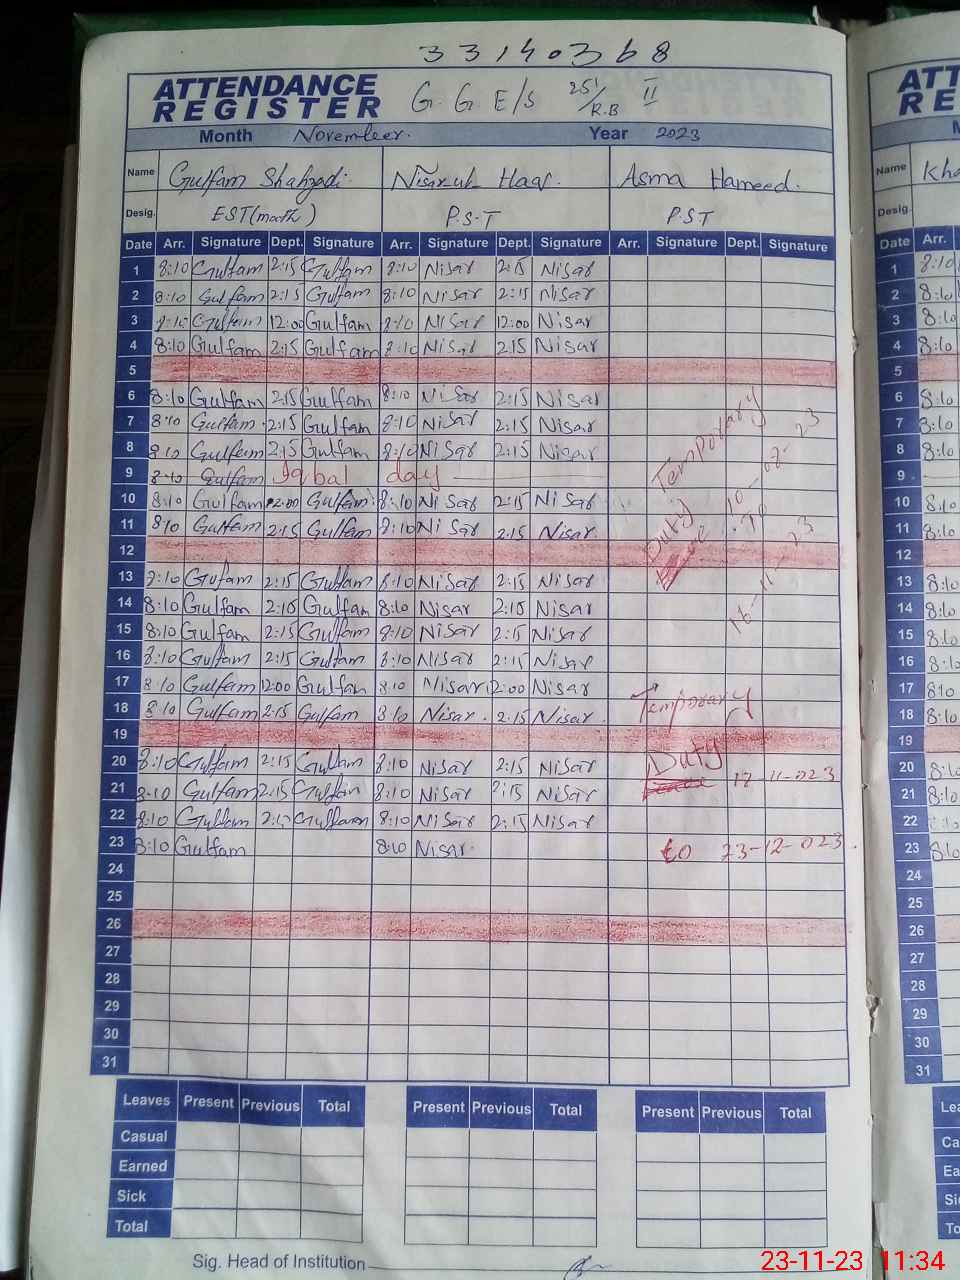 33140368
ATTENDANCE
REGISTER G. G. E/S 251/R.B II
Month November. Year 2023
Name Gulfam Shahzadi. Nisar ul Haq. Asma Hameed.
Desig. EST(math) P.S-T P.ST
Date Arr. Signature Dept. Signature Arr. Signature Dept. Signature Arr. Signature Dept. Signature
1 8:10 Gulfam 2:15 Gulfam 8:10 Nisar 2:15 Nisar
2 8:10 Gulfam 2:15 Gulfam 8:10 Nisar 2:15 Nisar
3 8:10 Gulfam 12:00 Gulfam 8:10 Nisar 12:00 Nisar
4 8:10 Gulfam 2:15 Gulfam 8:10 Nisar 2:15 Nisar
5
6 8:10 Gulfam 2:15 Gulfam 8:10 Nisar 2:15 Nisar
7 8:10 Gulfam 2:15 Gulfam 8:10 Nisar 2:15 Nisar
8 8:10 Gulfam 2:15 Gulfam 8:10 Nisar 2:15 Nisar
9 8:10 Gulfam Iqbal day
10 8:10 Gulfam 12:00 Gulfam 8:10 Nisar 2:15 Nisar
11 8:10 Gulfam 2:15 Gulfam 8:10 Nisar 2:15 Nisar
12
Temporary
Duty 10-02-23
To
16-11-23
13 8:10 Gulfam 2:15 Gulfam 8:10 Nisar 2:15 Nisar
14 8:10 Gulfam 2:15 Gulfam 8:10 Nisar 2:15 Nisar
15 8:10 Gulfam 2:15 Gulfam 8:10 Nisar 2:15 Nisar
16 8:10 Gulfam 2:15 Gulfam 8:10 Nisar 2:15 Nisar
17 8:10 Gulfam 12:00 Gulfam 8:10 Nisar 12:00 Nisar
18 8:10 Gulfam 2:15 Gulfam 8:10 Nisar 2:15 Nisar Temporary
19
20 8:10 Gulfam 2:15 Gulfam 8:10 Nisar 2:15 Nisar Duty
21 8:10 Gulfam 2:15 Gulfam 8:10 Nisar 2:15 Nisar 17-11-023
22 8:10 Gulfam 2:15 Gulfam 8:10 Nisar 2:15 Nisar
23 8:10 Gulfam 8:10 Nisar to 23-12-023.
24
25
26
27
28
29
30
31
Leaves Present Previous Total Present Previous Total Present Previous Total
Casual
Earned
Sick
Total
Sig. Head of Institution
ATT
RE
Name Kha
Desig.
Date Arr.
1 8:10
2 8:10
3 8:10
4 8:10
5
6 8:10
7 8:10
8 8:10
9
10 8:10
11 8:10
12
13 8:10
14 8:10
15 8:10
16 8:10
17 8:10
18 8:10
19
20 8:10
21 8:10
22 8:10
23 8:10
24
25
26
27
28
29
30
31
Lea
Ca
Ea
Si
To
23-11-23 11:34